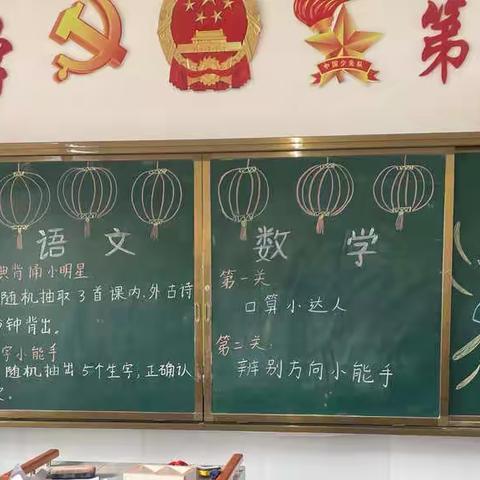 第
中国少先队
语文
典背诵小明星
随机抽取3首课内、外古诗
钟背出。
字小能手
随机抽出5个生字,正确认
数学
第一关:
口算小达人
第二关:
辨别方向小能手